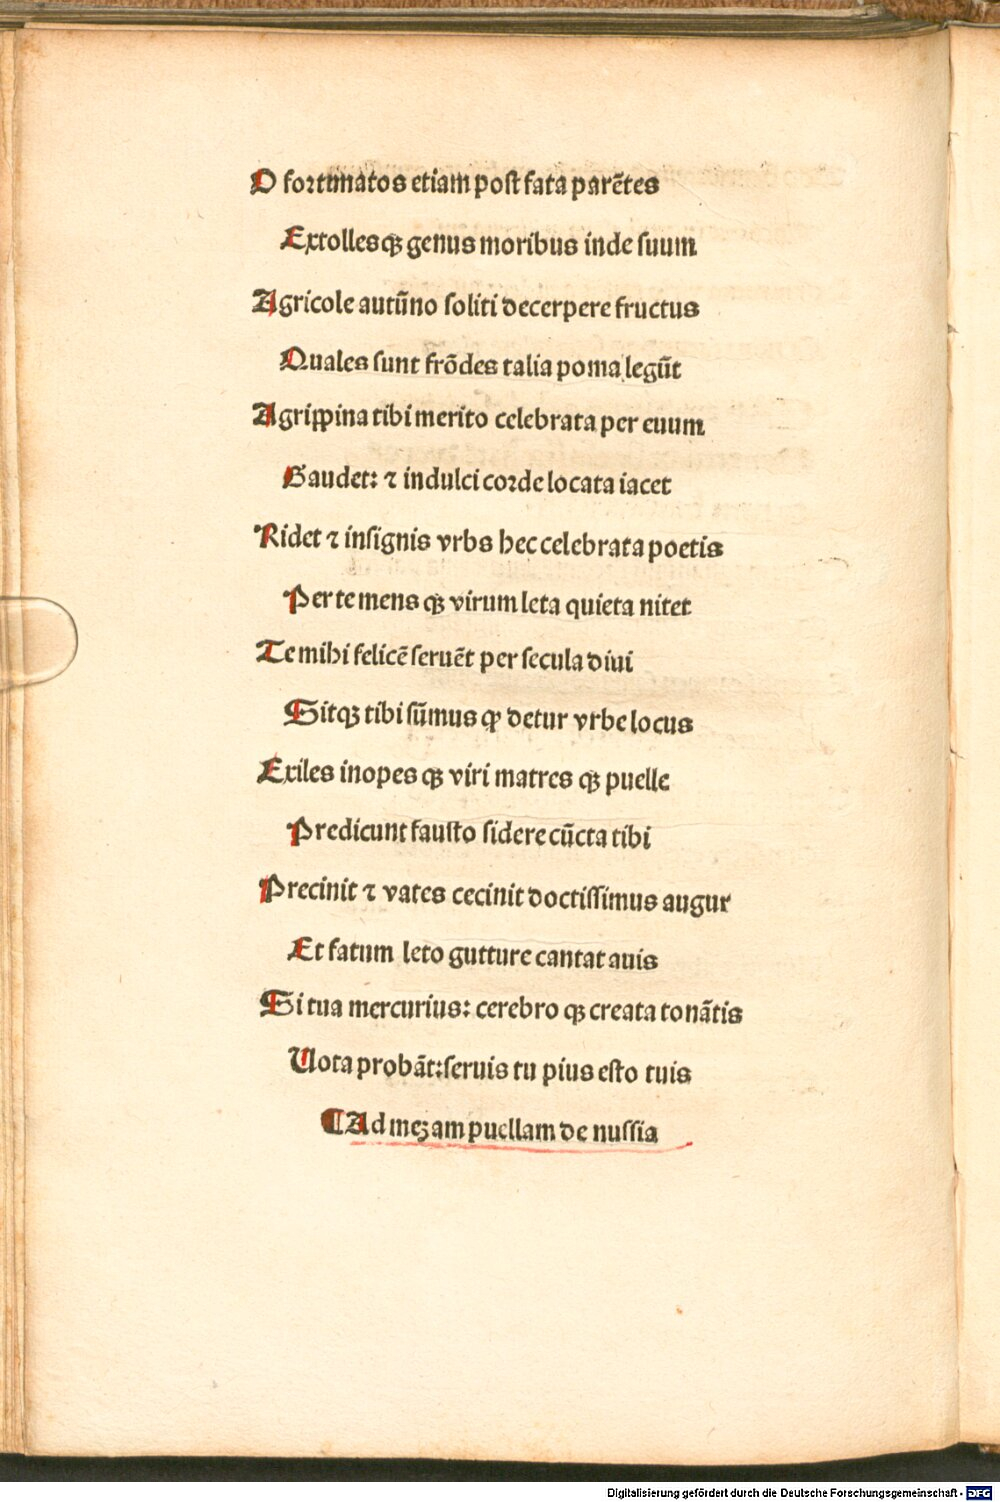 O fortunatos etiam post fata parẽtes
Extollesqꝫ genus moribus inde suum
Agricole autũno soliti decerpere fructus
Quales sunt frõdes talia poma legũt
Agrippina tibi merito celebrata per euum
Gaudet: ⁊ indulci corde locata iacet
Ridet ⁊ insignis vrbs hec celebrata poetis
Per te mens qꝫ virum leta quieta nitet
Te mihi felicẽ seruẽt per secula diui
Sitqꝫ tibi sũmus ꝙ detur vrbe locus
Exiles inopes qꝫ viri matres qꝫ puelle
Predicunt fausto sidere cũcta tibi
Precinit ⁊ vates cecinit doctissimus augur
Et fatum leto gutture cantat auis
Si tua mercurius: cerebro qꝫ creata tonãtis
Uota probãt: seruis tu pius esto tuis
¶ Ad mezam puellam de nussia
Digitalisierung gefördert durch die Deutsche Forschungsgemeinschaft - DFG